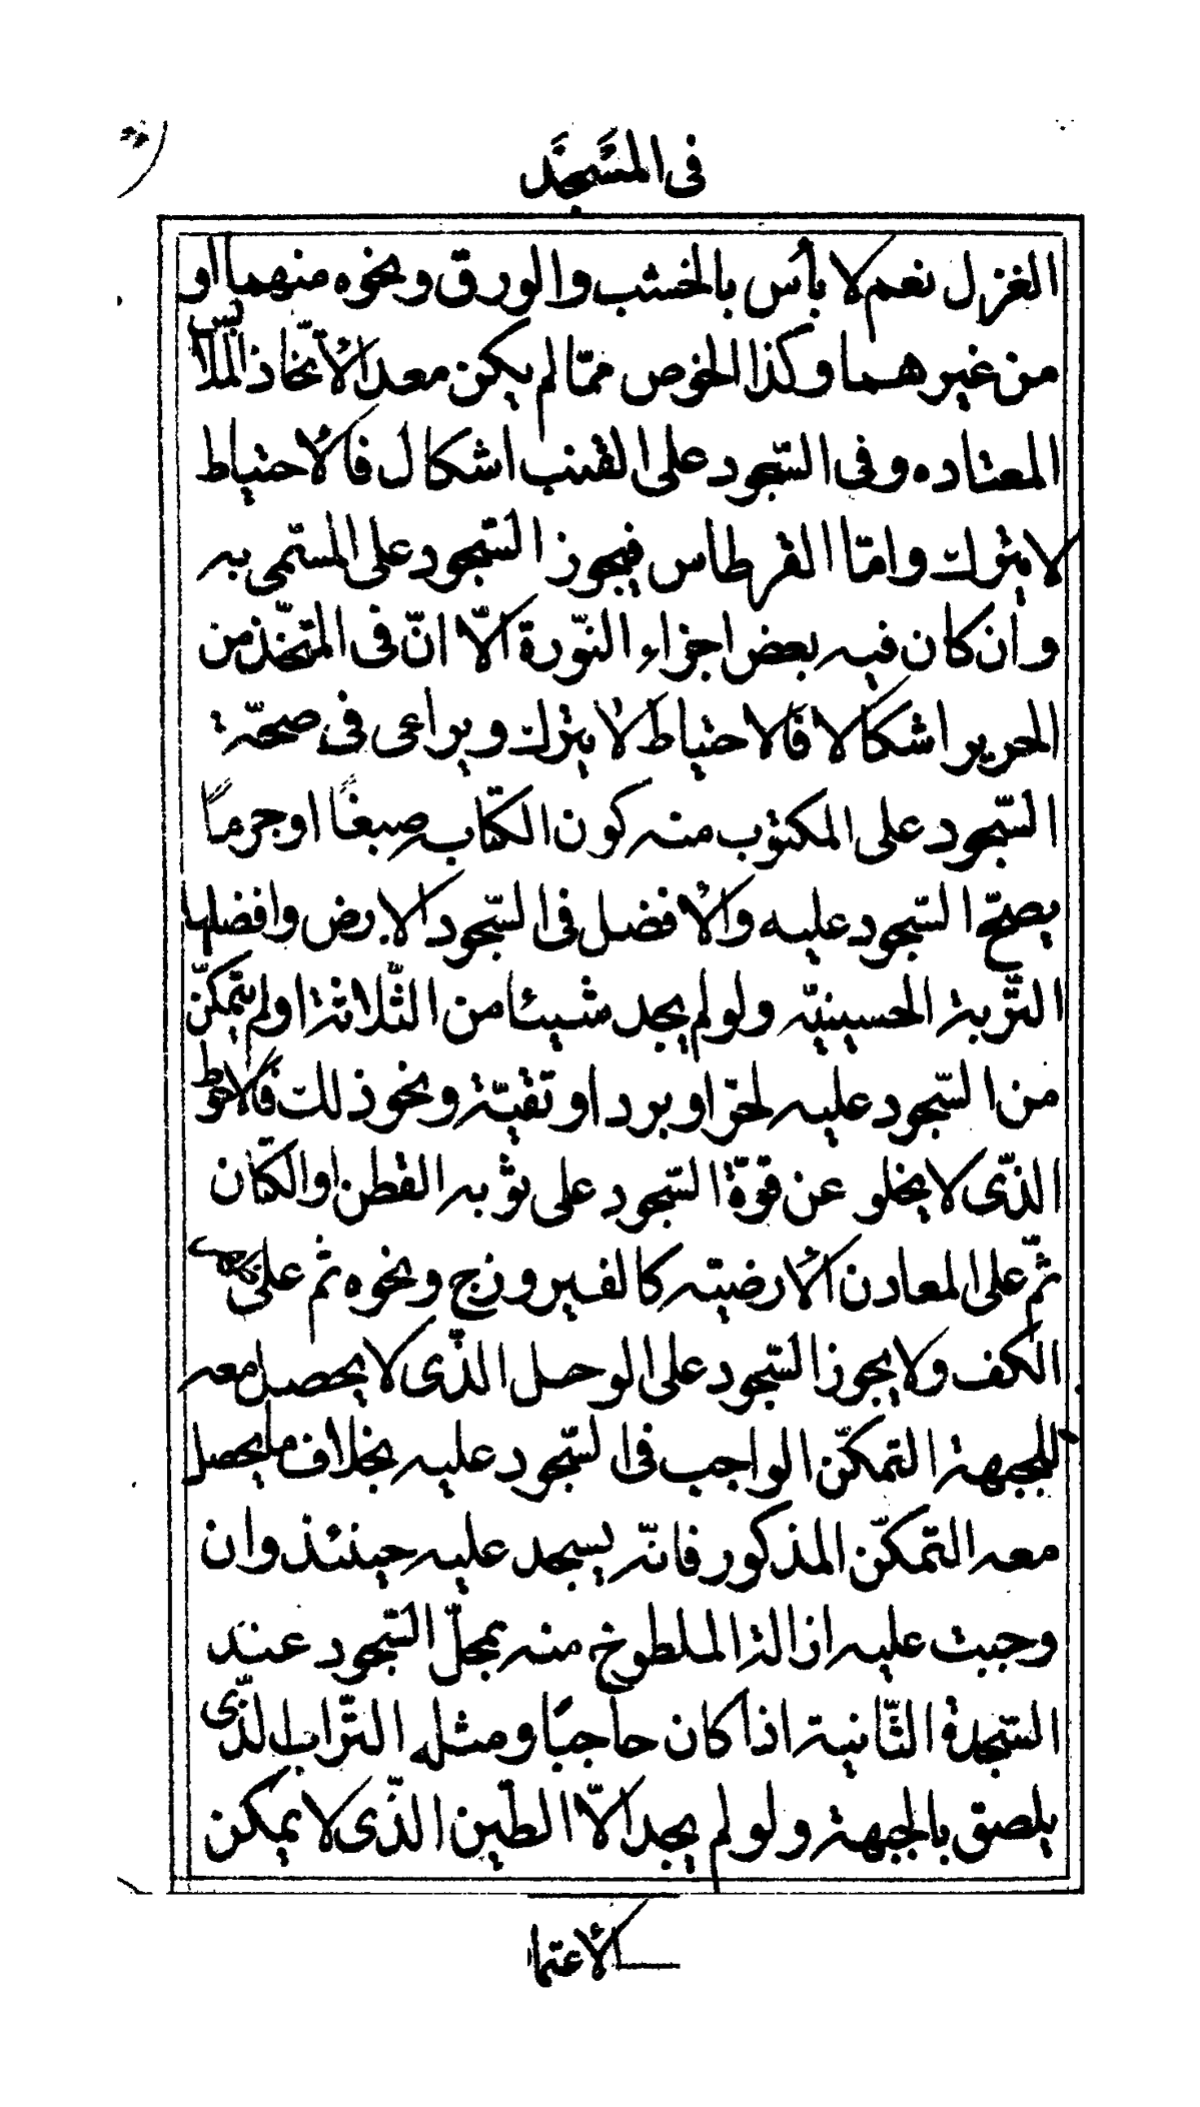 فى المسجد
الغزل نعم لا بأس بالخشب والورق ونحوه منهما او
من غيرهما وكذا الخوص ممّا لم يكن معدا لاتّخاذ الملابس
المعتاده وفى السّجود على القنب اشكال فالاحتياط
لا يترك وامّا القرطاس فيجوز السّجود على المسمّى به
وان كان فيه بعض اجزاء النّورة الّا انّ فى المتّخذ من
الحرير اشكالا فالاحتياط لا يترك ويراعى فى صحّة
السّجود على المكتوب منه كون الكتابه صبغًا او جرمًا
يصحّ السّجود عليه والأفضل فى السّجود الارض وافضلها
التّربة الحسينيّه ولو لم يجد شيئا من الثّلاثة او لم يتمكّن
من السّجود عليه لحرّ او برد او تقيّة ونحو ذلك فالاحوط
الذّى لا يخلو عن قوّة السّجود على ثوبه القطن او الكتّان
ثمّ على المعادن الأرضيّه كالفيروزج ونحوه ثم على ظهر
الكف ولا يجوز السّجود على الوحل الذّى لا يحصل معه
للجبهة التمكّن الواجب فى السّجود عليه بخلاف ما يحصل
معه التمكّن المذكور فانّه يسجد عليه حينئذ وان
وجبت عليه ازالة الملطوخ منه بمحلّ السّجود عند
السّجدة الثّانية اذا كان حاجبًا ومثله التّراب الذّى
يلصق بالجبهة ولو لم يجد الّا الطّين الذّى لا يمكن
الأعتما